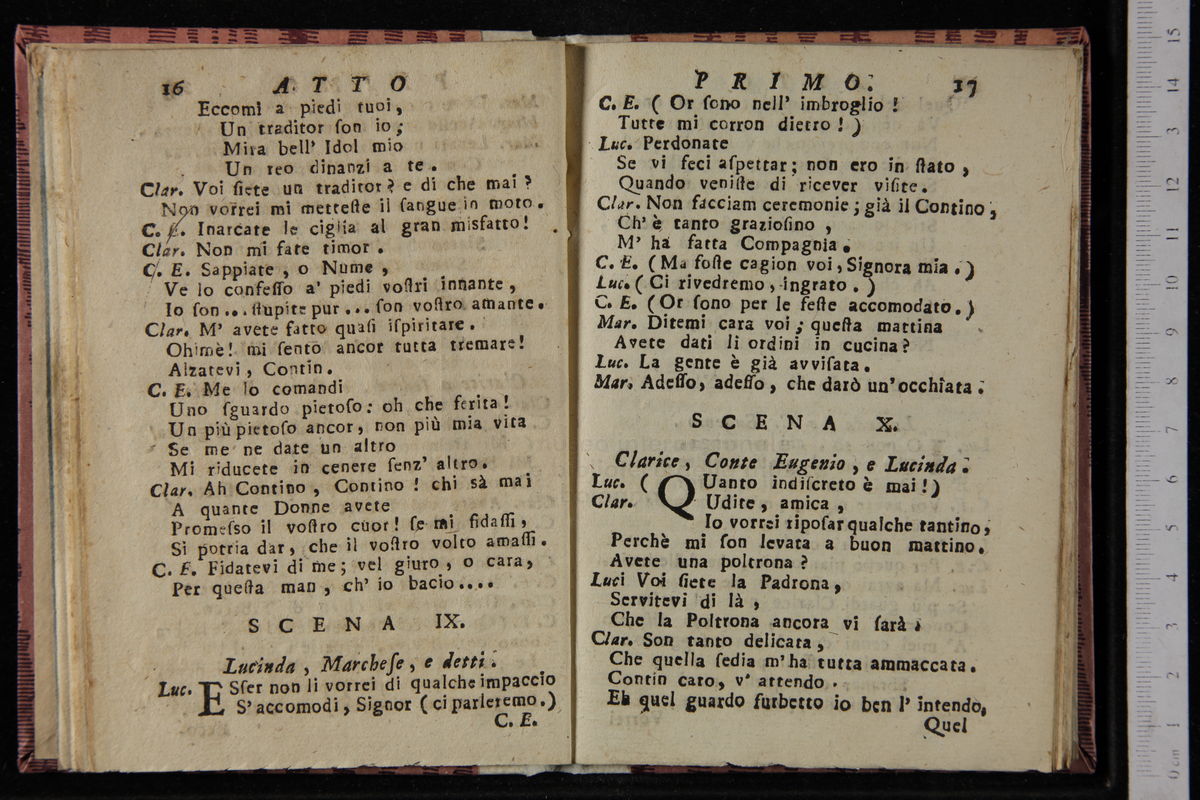 16 A T T O
Eccomi a piedi tuoi,
Un traditor ſon io;
Mira bell' Idol mio
Un reo dinanzi a te.
Clar. Voi ſiete un traditor? e di che mai?
Non vorrei mi metteſte il ſangue in moto.
C. E. Inarcate le ciglia al gran misfatto!
Clar. Non mi fate timor.
C. E. Sappiate, o Nume,
Ve lo confeſſo a' piedi voſtri innante,
Io ſon... ſtupite pur... ſon voſtro amante.
Clar. M' avete fatto quaſi iſpiritare.
Ohimè! mi ſento ancor tutta tremare!
Alzatevi, Contin.
C. E. Me lo comandi
Uno ſguardo pietoſo: oh che ferita!
Un più pietoſo ancor, non più mia vita
Se me ne date un altro
Mi riducete in cenere ſenz' altro.
Clar. Ah Contino, Contino! chi sà mai
A quante Donne avete
Promeſso il voſtro cuor! ſe mi fidaſſi,
Si potria dar, che il voſtro volto amaſſi.
C. E. Fidatevi di me; vel giuro, o cara,
Per queſta man, ch' io bacio....
S C E N A IX.
Lucinda, Marcheſe, e detti.
Luc. ESſer non li vorrei di qualche impaccio
S' accomodi, Signor (ci parleremo.)
C. E.
P R I M O. 17
C. E. (Or ſono nell' imbroglio!
Tutte mi corron dietro!)
Luc. Perdonate
Se vi feci aſpettar; non ero in ſtato,
Quando veniſte di ricever viſite.
Clar. Non facciam ceremonie; già il Contino,
Ch' è tanto grazioſino,
M' ha fatta Compagnia.
C. E. (Ma foſte cagion voi, Signora mia.)
Luc. (Ci rivedremo, ingrato.)
C. E. (Or ſono per le feſte accomodato.)
Mar. Ditemi cara voi; queſta mattina
Avete dati li ordini in cucina?
Luc. La gente è già avviſata.
Mar. Adeſſo, adeſſo, che darò un' occhiata.
S C E N A X.
Clarice, Conte Eugenio, e Lucinda.
Luc. (QUanto indiſcreto è mai!)
Clar. Udite, amica,
Io vorrei ripoſar qualche tantino,
Perchè mi ſon levata a buon mattino.
Avete una poltrona?
Luci Voi ſiete la Padrona,
Servitevi di là,
Che la Poltrona ancora vi ſarà.
Clar. Son tanto delicata,
Che quella ſedia m' ha tutta ammaccata.
Contin caro, v' attendo.
Eh quel guardo furbetto io ben l' intendo,
Quel
0 cm 1 2 3 4 5 6 7 8 9 10 11 12 13 14 15